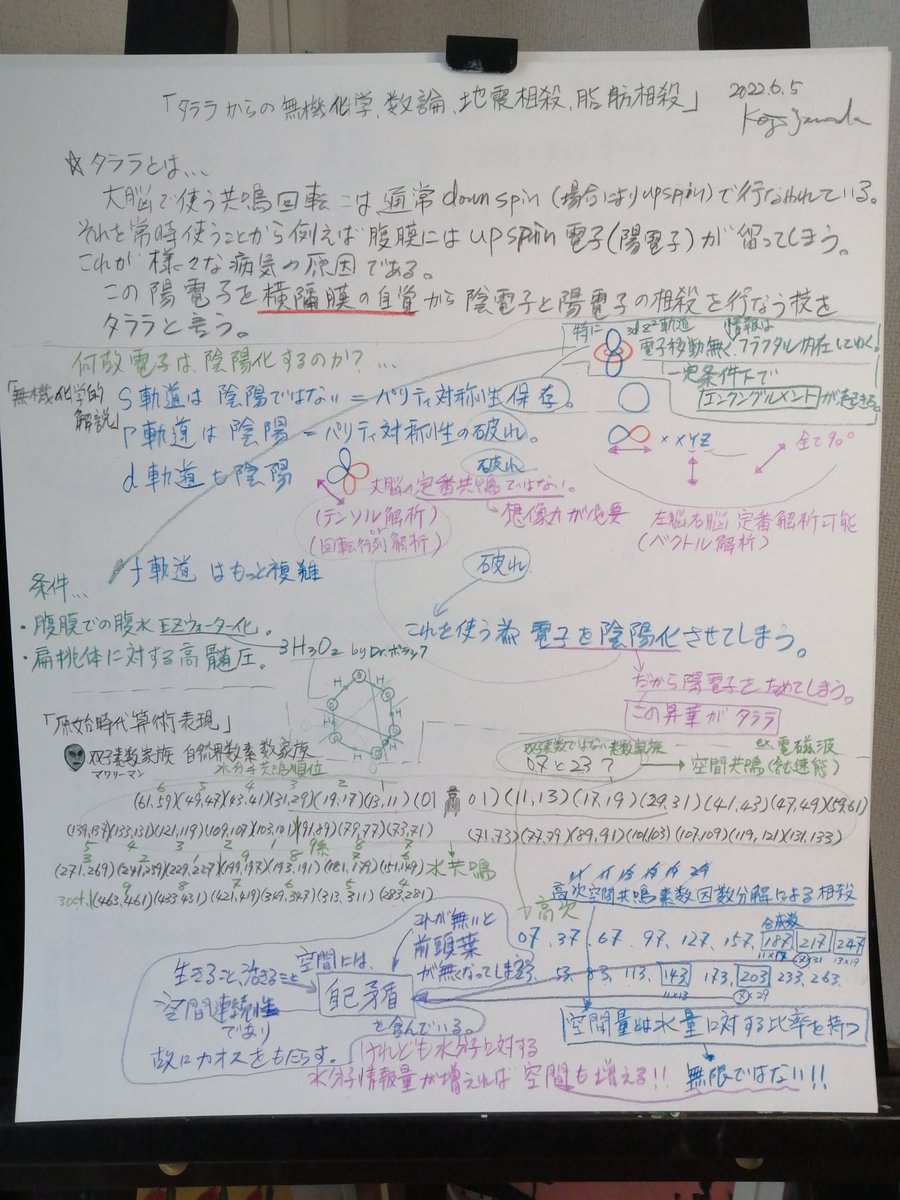 「タララからの無機化学、数論、地震相殺、脂肪相殺」
2022.6.5
☆タララとは…
大脳で使う共鳴回転こは通常down spin (場合によりup spin)で行なわれている。
それを常時使うことから例えば腹膜にはup spin 電子(陽電子)が留ってしまう。
これが様々な病気の原因である。
この陽電子を横隔膜の自覚から陰電子と陽電子の相殺を行なう技を
タララと言う。
何故電子は、陰陽化するのか? …
特に 3dz²軌道 情報は
電子移動無く、フラクタル内在してゆく!
一定条件下で
エンタングルメントが起きる。
「無機化学的解説」
S軌道は 陰陽ではない = パリティ対称性保存。
P軌道は 陰陽 = パリティ対称性の破れ。
× XYZ
全て90°
d軌道も陰陽
破れ
大脳の定番共鳴ではない。
想像力が必要
(テンソル解析)
or
(回転行列解析)
左脳右脳 定番解析可能
(ベクトル解析)
f軌道はもっと複雑
破れ
条件…
・腹膜での腹水EZウォーター化。
・扁桃体に対する高髄圧。
3H₃O₂ by Dr.ポラック
これを使う為 電子を陰陽化させてしまう。
だから陽電子をためてしまう。
この昇華がタララ
「原始時代算術表現」
双子素数家族 自然界数素数家族
マクリーマン
水分子共鳴順位
双子素数ではない素数家族
07と23?
ex. 電磁波
空間共鳴(伝達能)
6 5 4 3 2 1
(61,59)(49,47)(43,41)(31,29)(19,17)(13,11)(01
01)(11,13)(17,19)(29,31)(41,43)(47,49)(59,61)
(139,137)(133,131)(121,119)(109,107)(103,101)(91,89)(79,77)(73,71)
(71,73)(77,79)(89,91)(101,103)(107,109)(119,121)(131,133)
(271,269)(241,239)(229,227)(199,197)(193,191)(181,179)(151,149)
水共鳴
(463,461)(433,431)(421,419)(349,347)(313,311)(283,281)
高次空間共鳴素数因数分解による相殺
高次
合成数
07, 37, 67, 97, 127, 157, 187, 217, 247
11×17 ⑦×31 13×19
23, 53, 83, 113, 143, 173, 203, 233, 263
11×13 ⑦×29
これが無いと
前頭葉
が無くなってしまう
生きること、治ること
空間連続性
であり
故にカオスをもたらす。
空間には、
自己矛盾
を含んでいる。
空間量は水量に対する比率を持つ
けれども水分子に対する
水分子情報量が増えれば 空間も増える!!
無限ではない!!